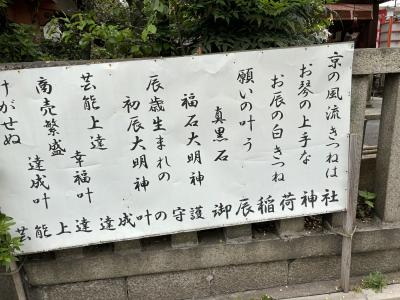 京の風流きつねは
お琴の上手な
お辰の白きつね
願いの叶う
真黒石
福石大明神
辰歳生まれの
初辰大明神
芸能上達
幸福叶
商売繁盛
達成叶
けがせぬ
芸能上達達成叶の守護 御辰稲荷神社